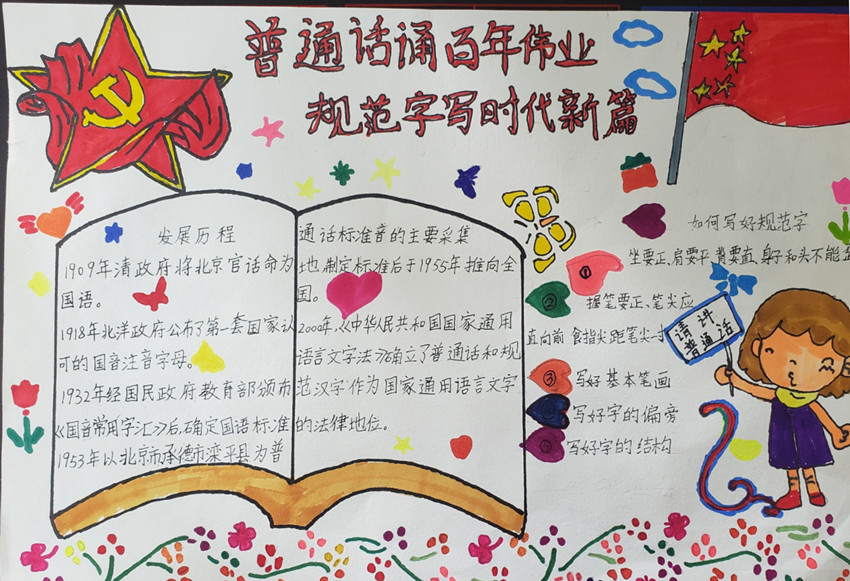 普通话诵百年伟业
规范字写时代新篇
发展历程
1909年清政府将北京官话命为
国语。
1918年北洋政府公布了第一套国家认
可的国音注音字母。
1932年经国民政府教育部颁布
《国音常用字汇》后,确定国语标准
1953年以北京市承德市滦平县为普
通话标准音的主要采集
地,制定标准后于1955年推向全
国。
2000年,《中华人民共和国国家通用
语言文字法》确立了普通话和规
范汉字作为国家通用语言文字
的法律地位。
如何写好规范字
① 坐要正、肩要平、背要直、身子和头不能
② 握笔要正、笔尖应
直向前 食指尖距笔尖一寸
③ 写好基本笔画
④ 写好字的偏旁
⑤ 写好字的结构
请讲
普通话